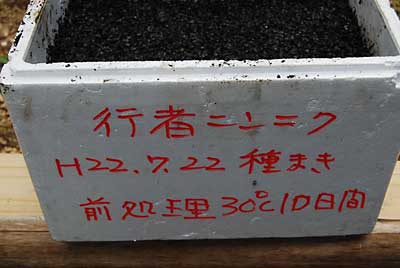 行者ニンニク
H22.7.22 種まき
前処理30℃10日間